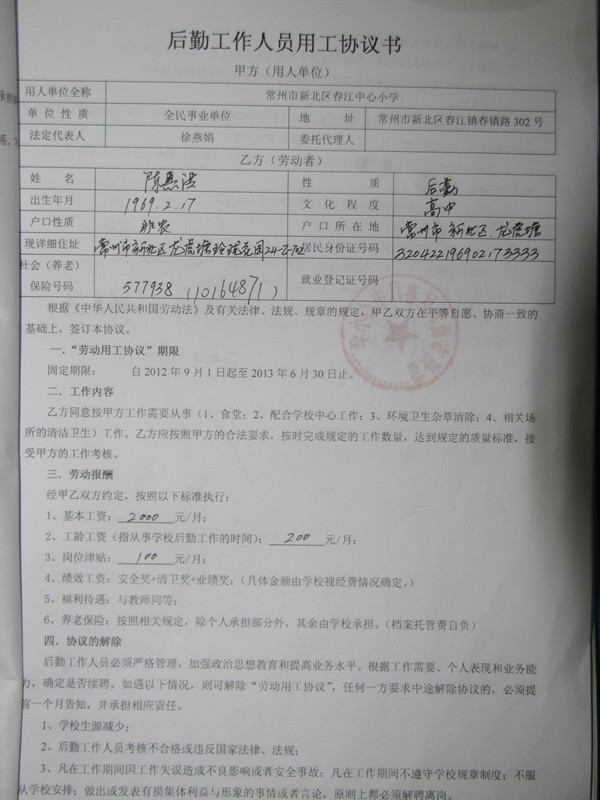 后勤工作人员用工协议书
甲方（用人单位）
用人单位全称 常州市新北区春江中心小学
单位性质 全民事业单位 地址 常州市新北区春江镇春镇路302号
法定代表人 徐燕娟 委托代理人
乙方（劳动者）
姓名 陈惠洁 性质 后勤
出生年月 1969.2.17 文化程度 高中
户口性质 非农 户口所在地 常州市新北区.龙虎塘
现详细住址 常州市新北区龙虎塘玲珑花园24-乙-702 居民身份证号码 320422196902173333
社会（养老）
保险号码 577938（10164871） 就业登记证号码
根据《中华人民共和国劳动法》及有关法律、法规、规章的规定，甲乙双方在平等自愿、协商一致的
基础上，签订本协议。
一.“劳动用工协议”期限
固定期限： 自2012年9月1日起至2013年6月30日止。
二.工作内容
乙方同意按甲方工作需要从事（1、食堂；2、配合学校中心工作；3、环境卫生杂草清除；4、相关场
所的清洁卫生）工作。乙方应按照甲方的合法要求，按时完成规定的工作数量，达到规定的质量标准，接
受甲方的工作考核。
三.劳动报酬
经甲乙双方约定，按照以下标准执行：
1、基本工资：2000元/月；
2、工龄工资（指从事学校后勤工作的时间）：200元/月；
3、岗位津贴：100元/月；
4、绩效工资：安全奖+清卫奖+业绩奖；（具体金额由学校视经费情况确定。）
5、福利待遇：与教师同等；
6、养老保险：按照相关规定，除个人承担部分外，其余由学校承担。（档案托管费自负）
四.协议的解除
后勤工作人员必须严格管理，加强政治思想教育和提高业务水平。根据工作需要、个人表现和业务能
力，确定是否续聘。如遇以下情况，则可解除“劳动用工协议”，任何一方要求中途解除协议的，必须提
前一个月告知，并承担相应责任。
1、学校生源减少；
2、后勤工作人员考核不合格或违反国家法律、法规；
3、凡在工作期间因工作失误造成不良影响或者安全事故；凡在工作期间不遵守学校规章制度；不服
从学校安排；做出或发表有损集体利益与形象的事情或者言论，原则上都必须解聘离岗。